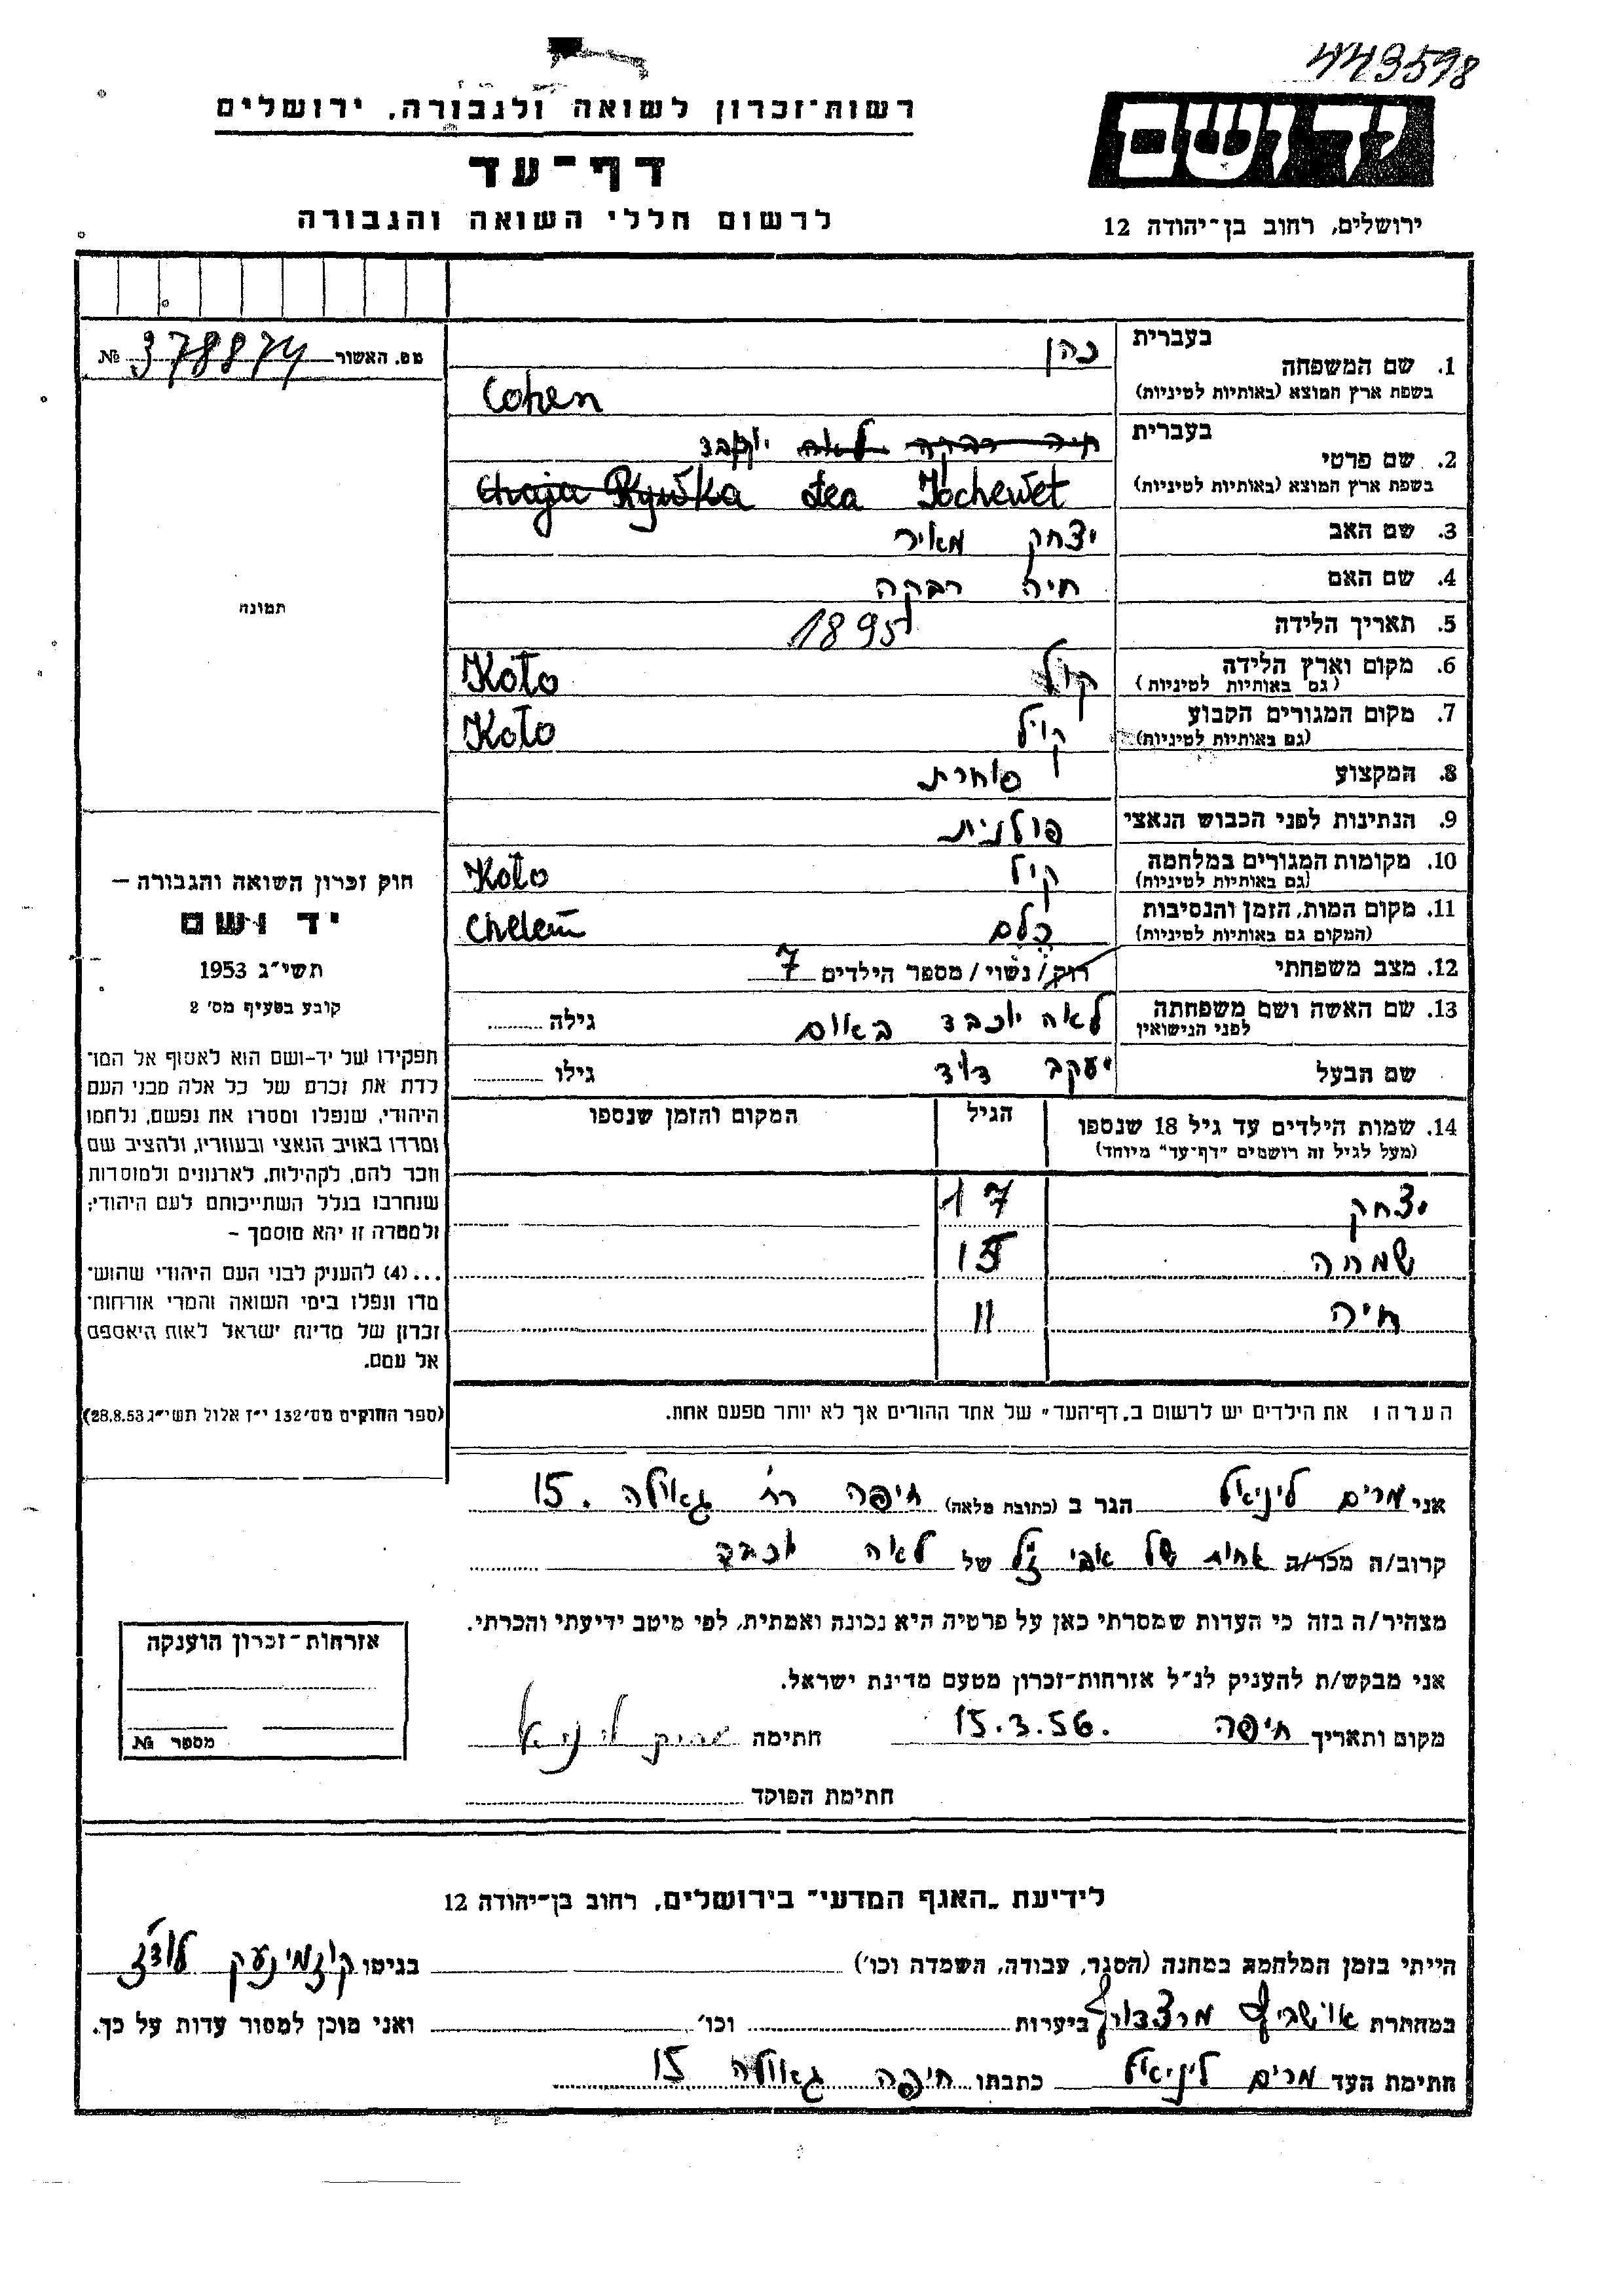 443598
רשות-זכרון לשואה ולגבורה, ירושלים
דף-עד
לרשום חללי השואה והגבורה
יד ושם
ירושלים, רחוב בן-יהודה 12
מס. האשור 378874 №
1. שם המשפחה
בעברית כהן
בשפת ארץ המוצא (באותיות לטיניות) Cohen
2. שם פרטי
בעברית חיה רבקה לאה יוכבד
בשפת ארץ המוצא (באותיות לטיניות) Chaja Rywka Lea Jochewet
3. שם האב יצחק מאיר
4. שם האם חיה רבקה
5. תאריך הלידה 1895
6. מקום וארץ הלידה Koto
(גם באותיות לטיניות)
7. מקום המגורים הקבוע קויל Koto
(גם באותיות לטיניות)
8. המקצוע סוחרת
9. הנתינות לפני הכבוש הנאצי פולנית
10. מקומות המגורים במלחמה קויל Koto
(גם באותיות לטיניות)
11. מקום המות, הזמן והנסיבות כלם Chelem
(המקום גם באותיות לטיניות)
12. מצב משפחתי רוק/ נשוי/ מספר הילדים 7
13. שם האשה ושם משפחתה לאה יוכבד באום גילה
לפני הנישואין
שם הבעל יעקב דוד גילו
14. שמות הילדים עד גיל 18 שנספו הגיל המקום והזמן שנספו
(מעל לגיל זה רושמים "דף-עד" מיוחד)
יצחק 17
שמחה 15
חיה 11
הערה: את הילדים יש לרשום ב„דף-העד" של אחד ההורים אך לא יותר מפעם אחת.
תמונה
חוק זכרון השואה והגבורה –
יד ושם
תשי"ג 1953
קובע בסעיף מס' 2
תפקידו של יד-ושם הוא לאסוף אל המו־
לדת את זכרם של כל אלה מבני העם
היהודי, שנפלו ומסרו את נפשם, נלחמו
ומרדו באויב הנאצי ובעוזריו, ולהציב שם
וזכר להם, לקהילות, לארגונים ולמוסדות
שנחרבו בגלל השתייכותם לעם היהודי;
ולמטרה זו יהא מוסמך –
...(4) להעניק לבני העם היהודי שהוש־
מדו ונפלו בימי השואה והמרי אזרחות־
זכרון של מדינת ישראל לאות היאספם
אל עמם.
(ספר החוקים מס' 132 י"ז אלול תשי"ג 28.8.53)
אני מרים ליניאל הגר ב (כתובת מלאה) חיפה רח' גאולה 15.
קרוב/ה מכר/ה אחות של אבי ז"ל של לאה יוכבד
מצהיר/ה בזה כי העדות שמסרתי כאן על פרטיה היא נכונה ואמתית, לפי מיטב ידיעתי והכרתי.
אני מבקש/ת להעניק לנ"ל אזרחות-זכרון מטעם מדינת ישראל.
מקום ותאריך חיפה 15.3.56. חתימה מרים ליניאל
חתימת הפוקד
אזרחות-זכרון הוענקה
מספר №
לידיעת „האגף המדעי" בירושלים, רחוב בן-יהודה 12
הייתי בזמן המלחמה במחנה (הסגר, עבודה, השמדה וכו') בגיטו קוזמינעק לודז'
במחתרת ביערות וכו' ואני מוכן למסור עדות על כך.
חתימת העד מרים ליניאל כתבתו חיפה גאולה 15